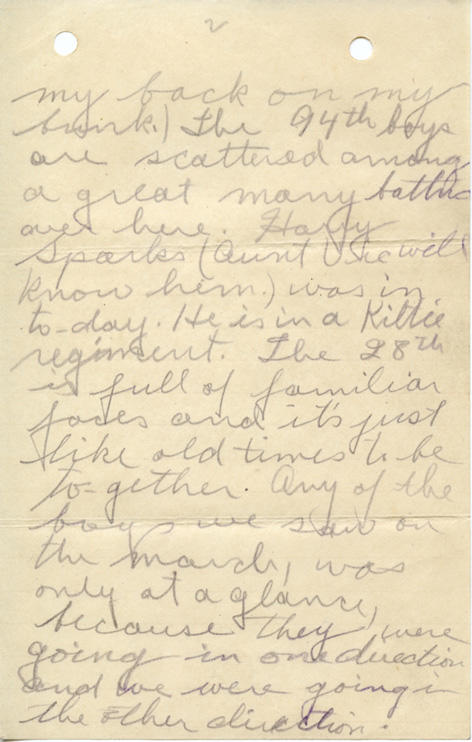 2
my back on my
bunk.) The 94th boys
are scattered among
a great many battns
over here. Harry
Sparks (Aunt Vic will
know him.) was in
to-day. He is in a Kiltie
regiment. The 28th
is full of familiar
faces and it's just
like old times to be
to-gether. Any of the
boys we saw on
the march, was
only at a glance,
because they were
going in one direction
and we were going in
the other direction.